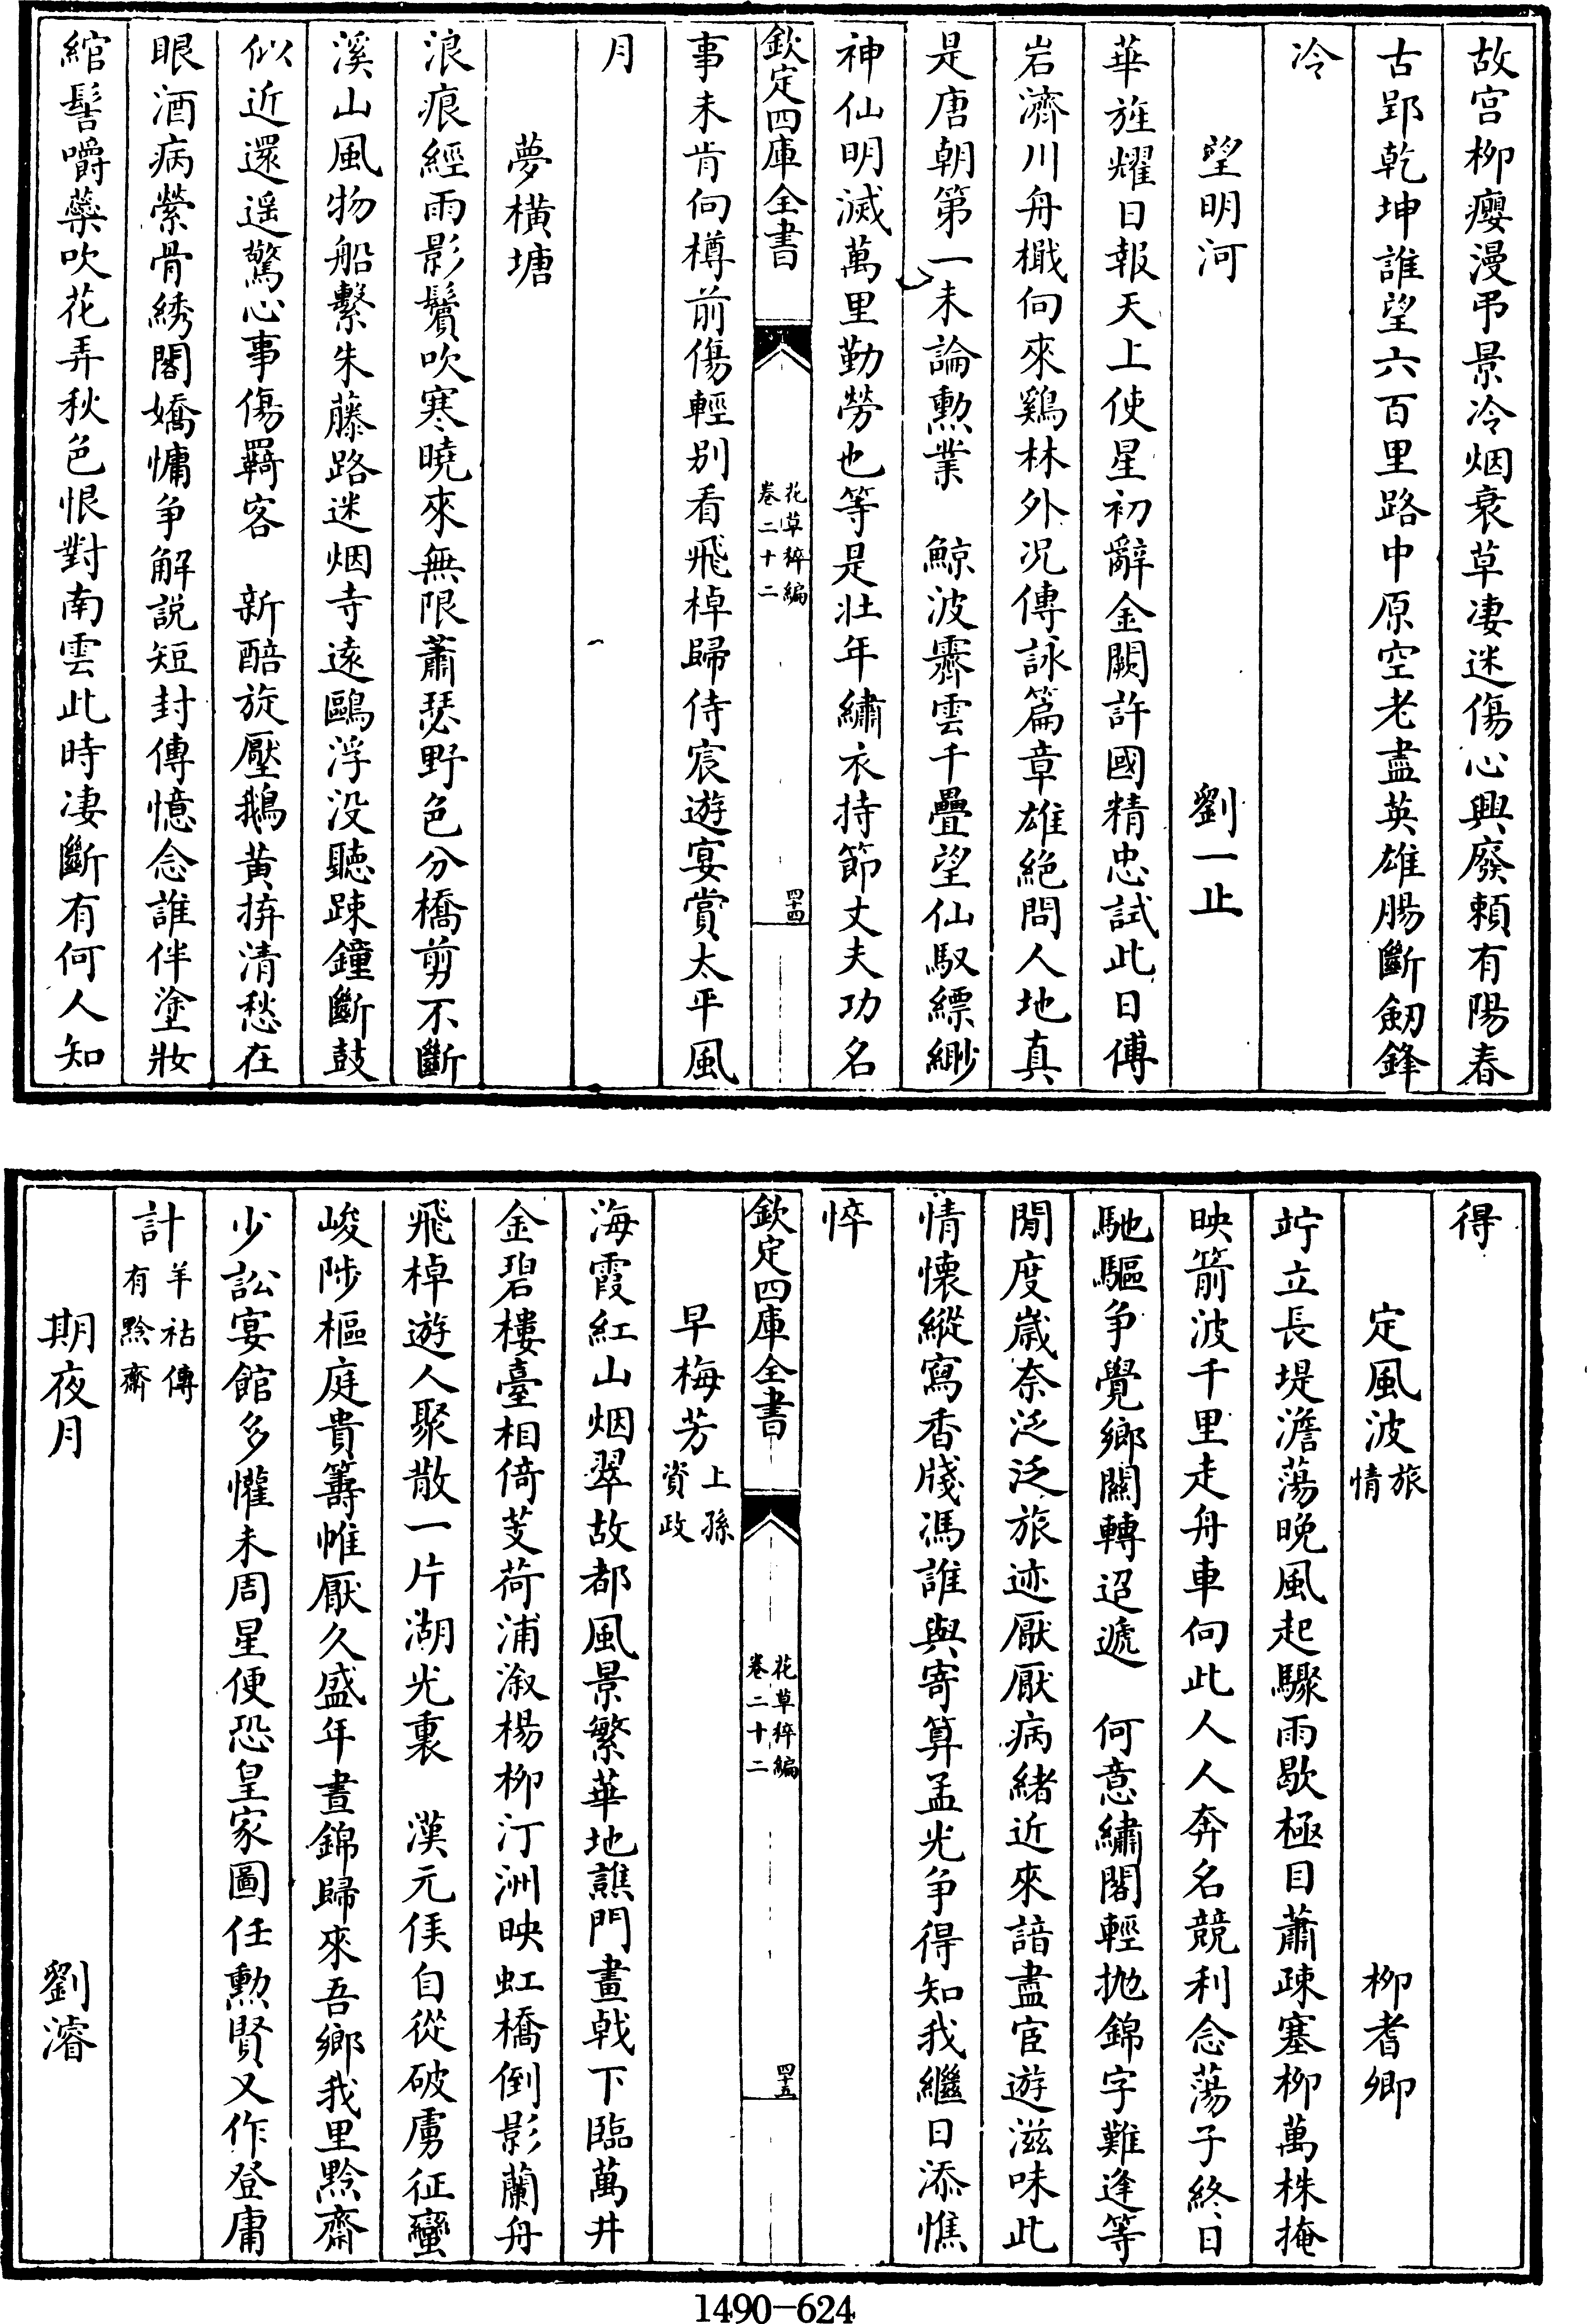 故宫柳癭漫弔景冷烟衰草凄迷傷心興廢頼有陽春
古郢乾坤誰望六百里路中原空老盡英雄腸斷劒鋒
冷
望明河　劉一止
華旌耀日報天上使星初辭金闕許國精忠試此日傅
岩濟川舟檝向來鷄林外况傳詠篇章雄絶問人地真
是唐朝第一未論勲業　鯨波霽雲千疊望仙馭縹緲
神仙明滅萬里勤勞也等是壮年繡衣持節丈夫功名
欽定四庫全書　花草稡編　卷二十二　四十四
事未肯向樽前傷輕别看飛棹歸侍宸遊宴賞太平風
月
夢橫塘
浪痕經雨影鬢吹寒曉來無限蕭瑟野色分橋剪不斷
溪山風物船繫朱藤路迷烟寺逺鷗浮没聽踈鐘斷鼓
似近還遥驚心事傷羇客　新醅旋壓鵝黄拚清愁在
眼酒病縈骨綉閣嬌慵争解説短封傳憶念誰伴塗妝
綰髻嚼蘂吹花弄秋色恨對南雲此時凄斷有何人知
得
定風波旅情　柳耆卿
竚立長堤澹蕩晚風起驟雨歇極目蕭疎塞柳萬株掩
映箭波千里走舟車向此人人奔名競利念蕩子終日
馳驅争覺鄉關轉迢遞　何意繡閣輕抛錦字難逢等
閒度嵗奈泛泛旅迹厭厭病緒近來諳盡宦遊滋味此
情懷縱寫香牋馮誰與寄算孟光争得知我繼日添憔
悴
欽定四庫全書　花草稡編　卷二十二　四十五
早梅芳上孫資政
海霞紅山烟翠故都風景繁華地譙門畫戟下臨萬井
金碧樓臺相倚芰荷浦溆楊柳汀洲映虹橋倒影蘭舟
飛棹遊人聚散一片湖光裏　漢元侯自從破虜征蠻
峻陟樞庭貴籌帷厭久盛年晝錦歸來吾鄉我里黔齋
少訟宴館多懽未周星便恐皇家圖任勲賢又作登庸
計羊祜傳有黔齋
期夜月　劉濬
1490-624